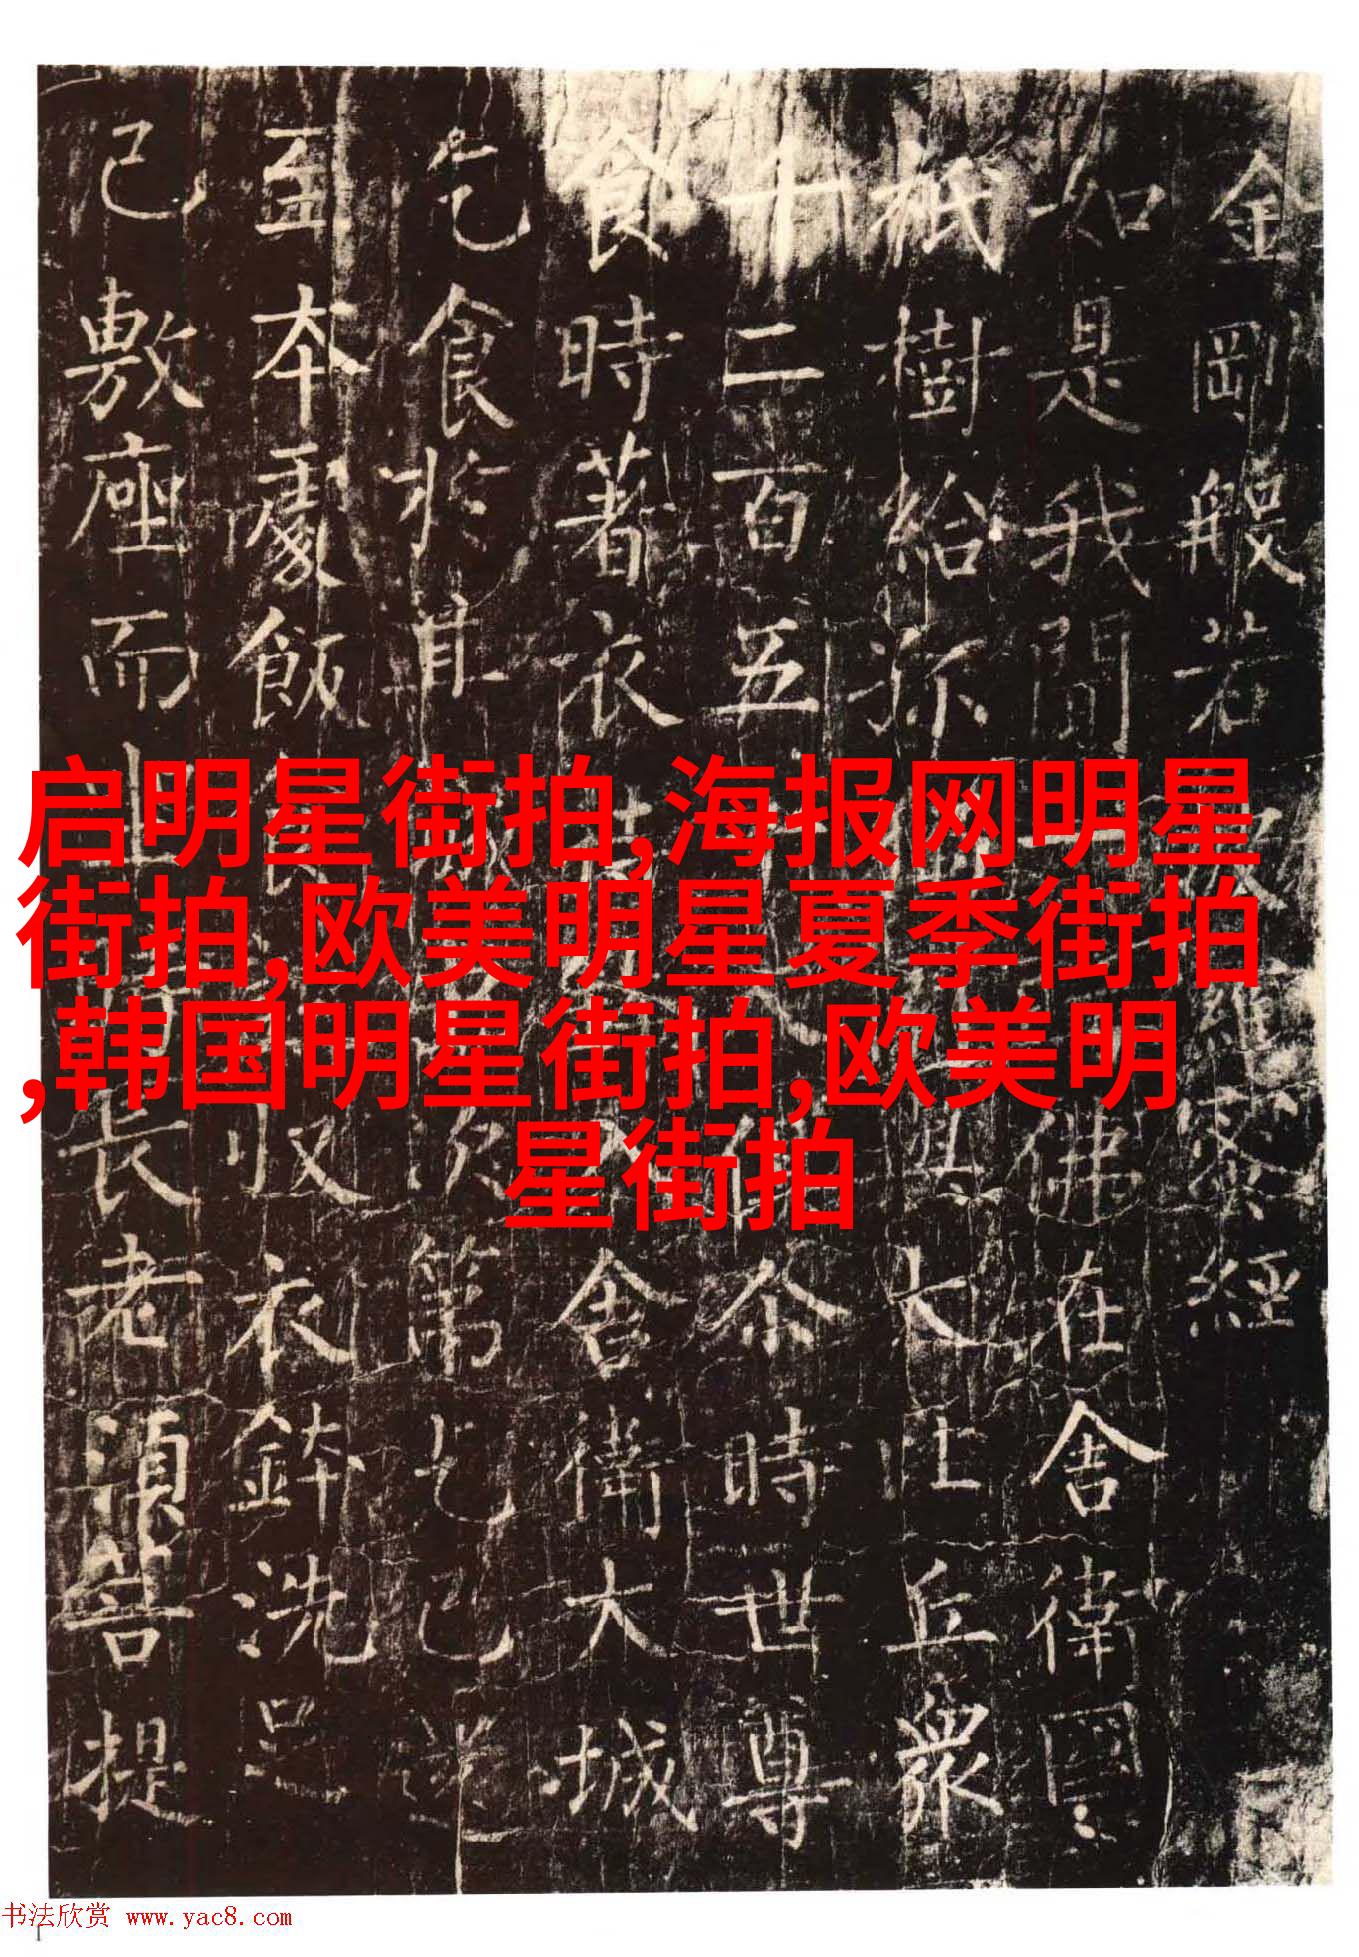 金剛般若羅蜜經
如是我聞佛在舍衛國
祇樹給孤大比丘眾
十二百五尒時世尊
食時著衣持舍衛大城
乞食於其次第乞已還
至本處飯食收衣鉢洗足
已敷座而坐時長老須菩提
启明星街拍,海报网明星
街拍,欧美明星夏季街拍
,韩国明星街拍,欧美明
星街拍
书法欣赏 www.yac8.com